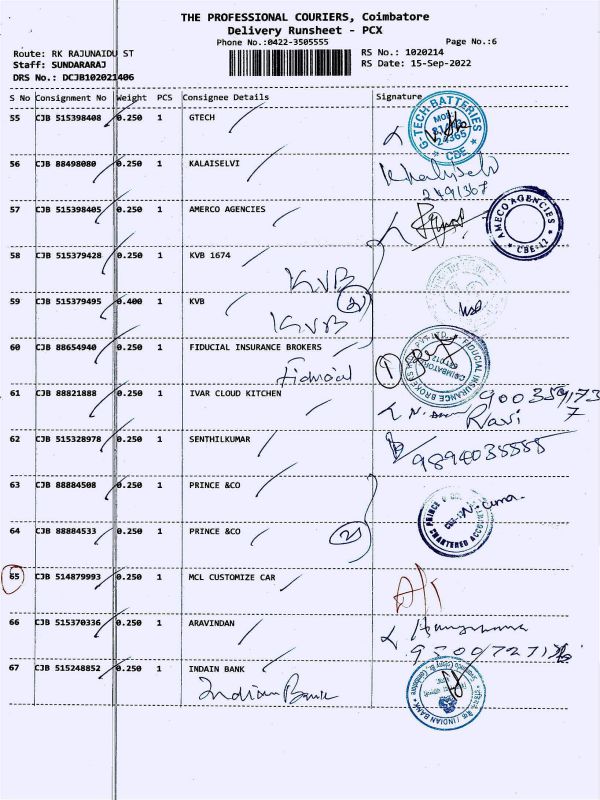 THE PROFESSIONAL COURIERS, Coimbatore
Delivery Runsheet - PCX
Phone No.:0422-3505555
Page No.:6
Route: RK RAJUNAIDU ST
RS No.: 1020214
Staff: SUNDARARAJ
RS Date: 15-Sep-2022
DRS No.: DCJB102021406
S No Consignment No Weight PCS Consignee Details Signature
55 CJB 515398408 0.250 1 GTECH
G-TECH-BATTERIES
CBE
56 CJB 88498080 0.250 1 KALAISELVI
57 CJB 515398405 0.250 1 AMERCO AGENCIES
AMECO AGENCIES
CBE-12
58 CJB 515379428 0.250 1 KVB 1674
KVB
2
59 CJB 515379495 0.400 1 KVB
KVB
60 CJB 88654940 0.250 1 FIDUCIAL INSURANCE BROKERS
1
FIDUCIAL INSURANCE BROKERS
COIMBATORE
61 CJB 88821888 0.250 1 IVAR CLOUD KITCHEN
Ravi
62 CJB 515328978 0.250 1 SENTHILKUMAR
9894035555
63 CJB 88884508 0.250 1 PRINCE &CO
PRINCE & CO
CHARTERED ACCOU
64 CJB 88884533 0.250 1 PRINCE &CO
2
65 CJB 514879993 0.250 1 MCL CUSTOMIZE CAR
66 CJB 515370336 0.250 1 ARAVINDAN
67 CJB 515248852 0.250 1 INDAIN BANK
Indian Bank
INDIAN BANK